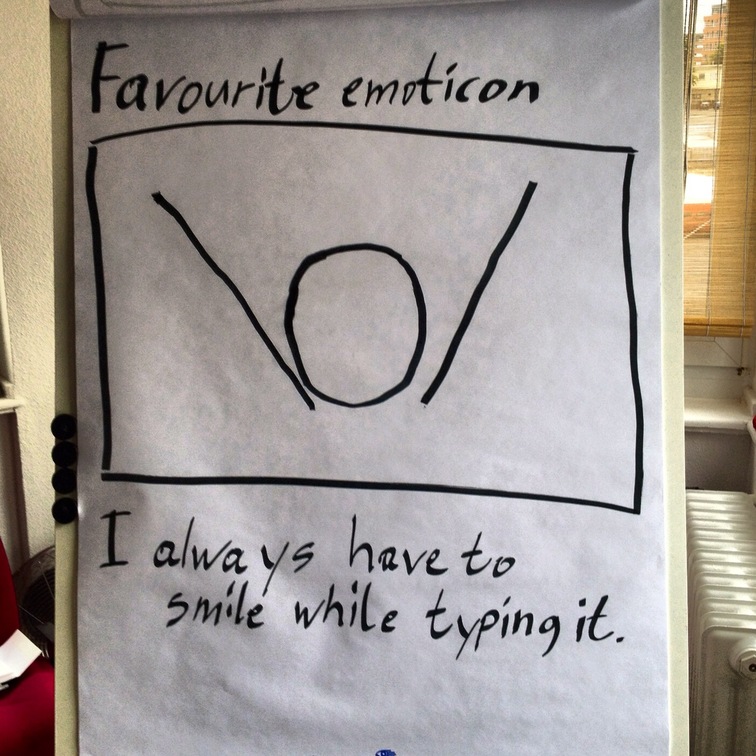 Favourite emoticon
\O/
I always have to
smile while typing it.